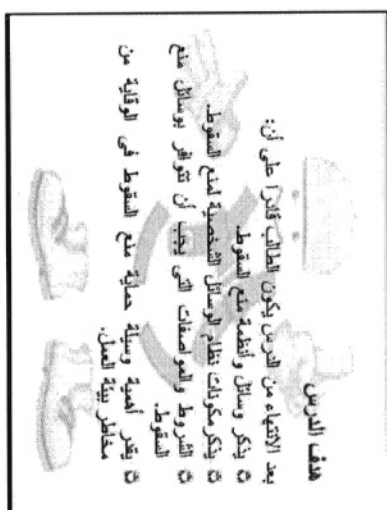 هدف الدرس
بعد الانتهاء من الدرس يكون الطالب قادرا على أن:
يذكر وسائل وأنظمة منع السقوط.
يذكر مكونات نظام الوسائل الشخصية لمنع السقوط.
الشروط والمواصفات التى يجب أن تتوافر بوسائل منع
السقوط.
يقدر أهمية وسيلة حماية منع السقوط فى الوقاية من
مخاطر بيئة العمل.